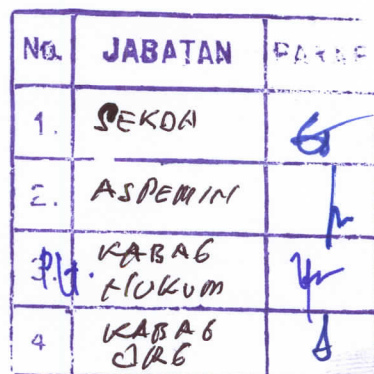 No. JABATAN PARAF
1. SEKDA
2. ASPEMIN
3. Plt. KABAG
HUKUM
4 KABAG
ORG